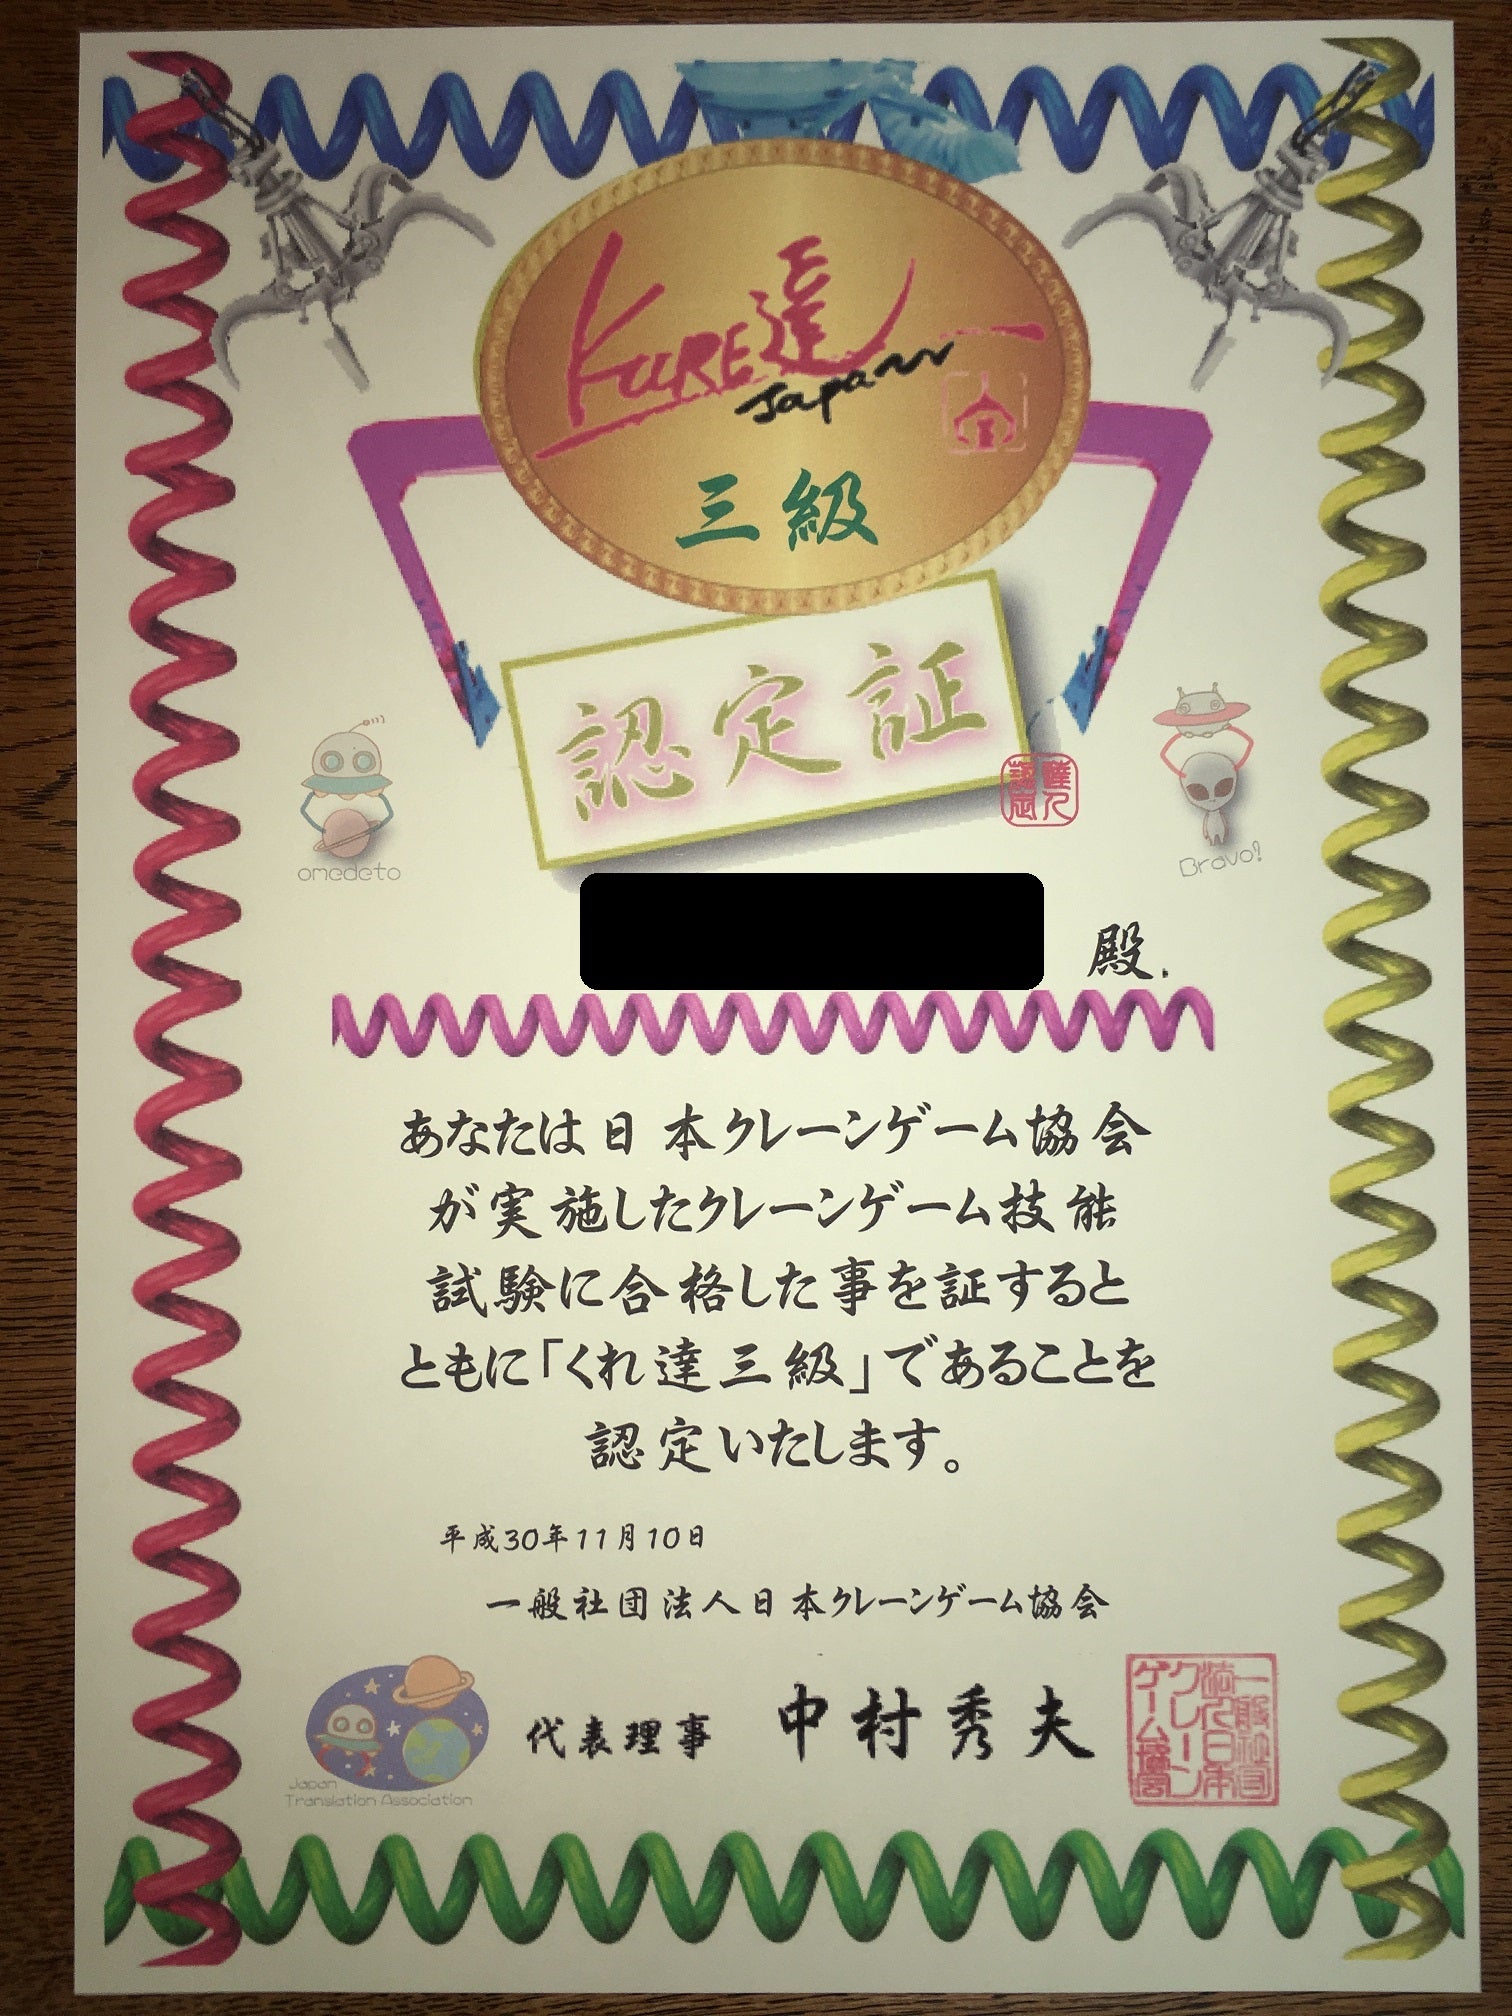 KURE達
Japan
三級
認定証
omedeto
Bravo!
殿.
あなたは日本クレーンゲーム協会
が実施したクレーンゲーム技能
試験に合格した事を証すると
ともに「くれ達三級」であることを
認定いたします。
平成30年11月10日
一般社団法人日本クレーンゲーム協会
代表理事 中村秀夫
一般社団
法人日本
クレーン
ゲーム協会
Japan
Translation Association